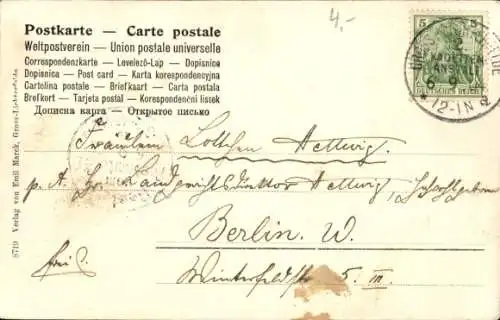 Postkarte — Carte postale
Weltpostverein — Union postale universelle
Correspondenzkarte — Levelező-Lap — Dopisnice
Dopisnica — Post card — Karta korespondencyjna
Cartolina postale — Briefkaart — Carta postala
Brefkort — Tarjeta postal — Korespondenční listek
Дописна карта — Открытое письмо
4,-
5 5
DEUTSCHES REICH
12-1N
Fräulein Lottchen Hettwig
p. A. Landgerichtsdirektor Hettwig
Berlin. W.
frei.
Winterfeldtstr. 5. III.
8719 Verlag von Emil Marck, Gross-Lichterfelde